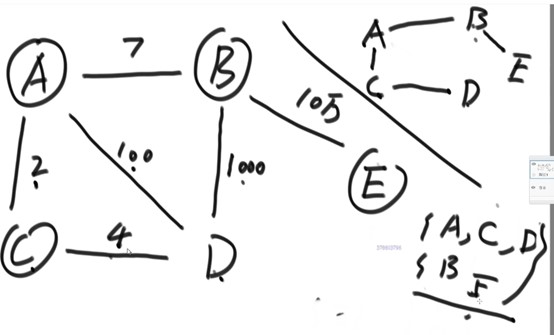 A 7 B
2 100 1000 10万
C 4 D E
A B
C D E
{A, C, D}
{B E